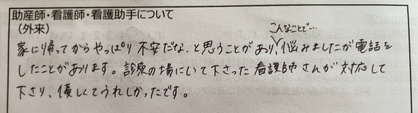 助産師・看護師・看護助手について
(外来)
こんなことで…
家に帰ってからやっぱり不安だな。と思うことがあり、悩みましたが電話を
したことがあります。診察の場にいて下さった看護師さんが対応して
下さり、優しくてうれしかったです。